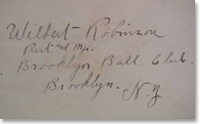 Wilbert Robinson
Brooklyn Ball Club.
Brooklyn.
N.Y